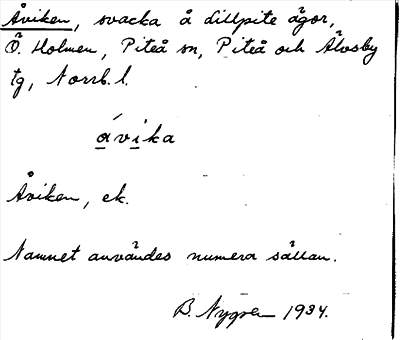 Åviken, svacka å Lillpite ägor,
Ö. Holmen, Piteå sn, Piteå och Älvsby
tg, Norrb. l.
ávika
Åviken, ek.
Namnet användes numera sällan.
B. Nygren 1934.